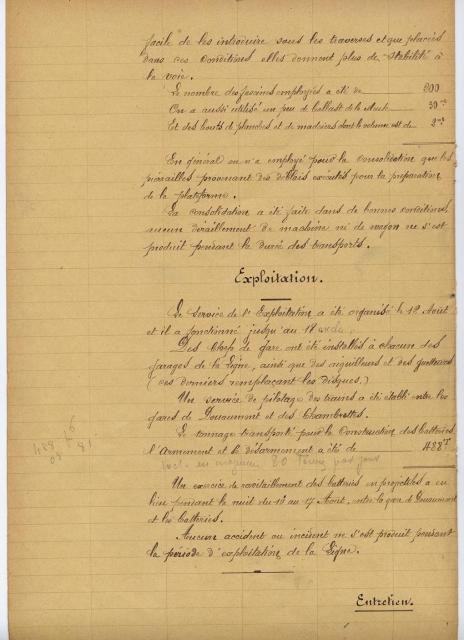 facile de les introduire sous les traverses et que placées
dans ces conditions elles donnent plus de stabilité à
la voie.
Le nombre des fascins employés a été de 800
On a aussi utilisé un peu de ballast de la Meuse 30 m3
Et des bouts de planches et de madriers dont le volume est de 2 m3
En général on n'a employé pour la consolidation que les
pierrailles provenant des déblais exécutés pour la préparation
de la plateforme.
La consolidation a été faite dans de bonnes conditions,
aucun déraillement de machine ni de wagon ne s'est
produit pendant la durée des transports.
Exploitation.
Le Service de l'Exploitation a été organisé le 12 Août
et il a fonctionné jusqu'au 18
Des Chefs de gare ont été installés à chacun des
garages de la ligne, ainsi que des aiguilleurs et des guetteurs
(ces derniers remplaçant les disques.)
Un service de pilotage des trains a été établi entre les
gares de Douaumont et des Chambrettes.
Le tonnage transporté pour la Construction des batteries
l'Armement et le désarmement a été de 488 T
soit en moyenne 80 Tonnes par jour
Un exercice de ravitaillement des batteries en projectiles a eu
lieu pendant la nuit du 16 au 17 Août, entre la gare de Douaumont
et les batteries.
Aucun accident ou incident ne s'est produit pendant
la période d'exploitation de la ligne.
Entretien.